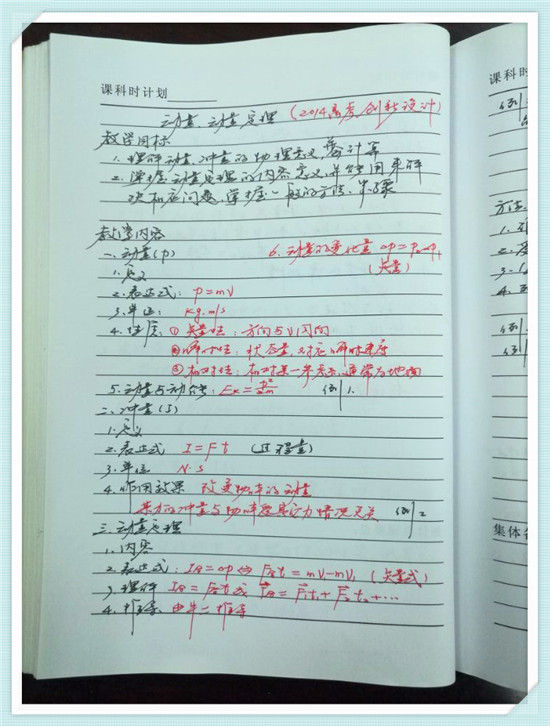 课科时计划
动量、动量定理 (2014高考创新设计)
教学目标
1. 理解动量、冲量的物理意义,会计算
2. 掌握动量定理的内容意义,并能用来解
决相应问题,掌握一般的方法、步骤
教学内容
一、动量(p) 6. 动量的变化量 Δp=p₂-p₁
1. 定义 (矢量)
2. 表达式: p=mv
3. 单位: kg·m/s
4. 性质: ① 矢量性: 方向与v同向
② 瞬时性: 状态量,对应瞬时速度
③ 相对性: 相对某一参考系,通常为地面
5. 动量与动能: Ek=p²/2m 例1.
二、冲量(I)
1. 定义
2. 表达式 I=Ft (过程量)
3. 单位 N·S
4. 作用效果 改变物体的动量
某力的冲量与物体受其它力情况无关 例2
三、动量定理
1. 内容
2. 表达式: I合=Δp ⇔ F合t=mv-mv₀ (矢量式)
3. 理解 I合=F合t 或 I合=F₁t₁+F₂t₂+…
4. 推导: 由牛二推导
课科时
例
方法
1.
2.
3.
4.
例
例
集体备